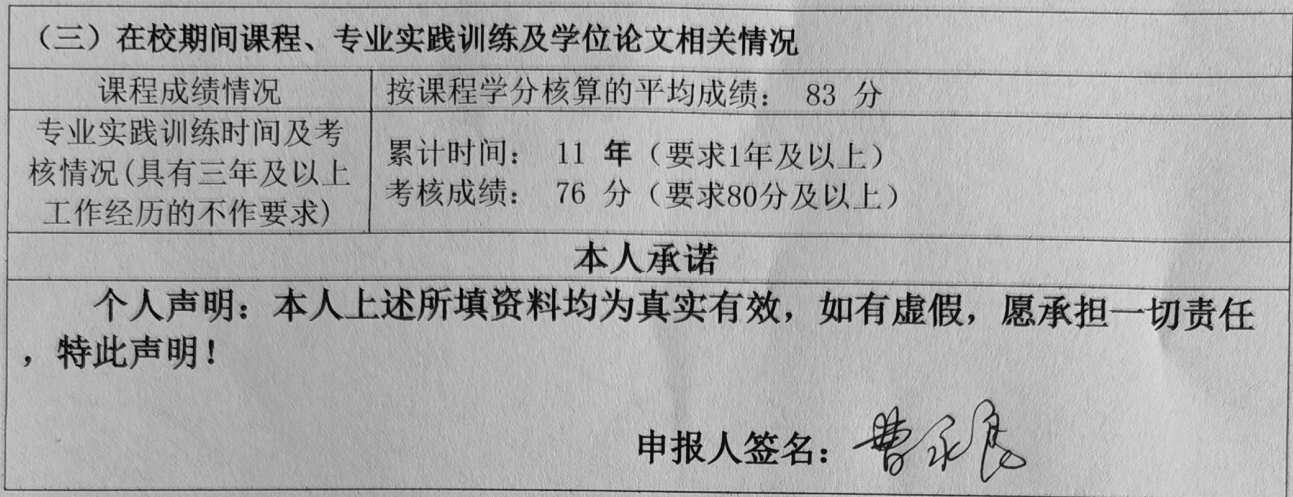 （三）在校期间课程、专业实践训练及学位论文相关情况
课程成绩情况
按课程学分核算的平均成绩： 83 分
专业实践训练时间及考
核情况(具有三年及以上
工作经历的不作要求)
累计时间： 11 年（要求1年及以上）
考核成绩： 76 分（要求80分及以上）
本人承诺
个人声明：本人上述所填资料均为真实有效，如有虚假，愿承担一切责任
，特此声明！
申报人签名：曹永良